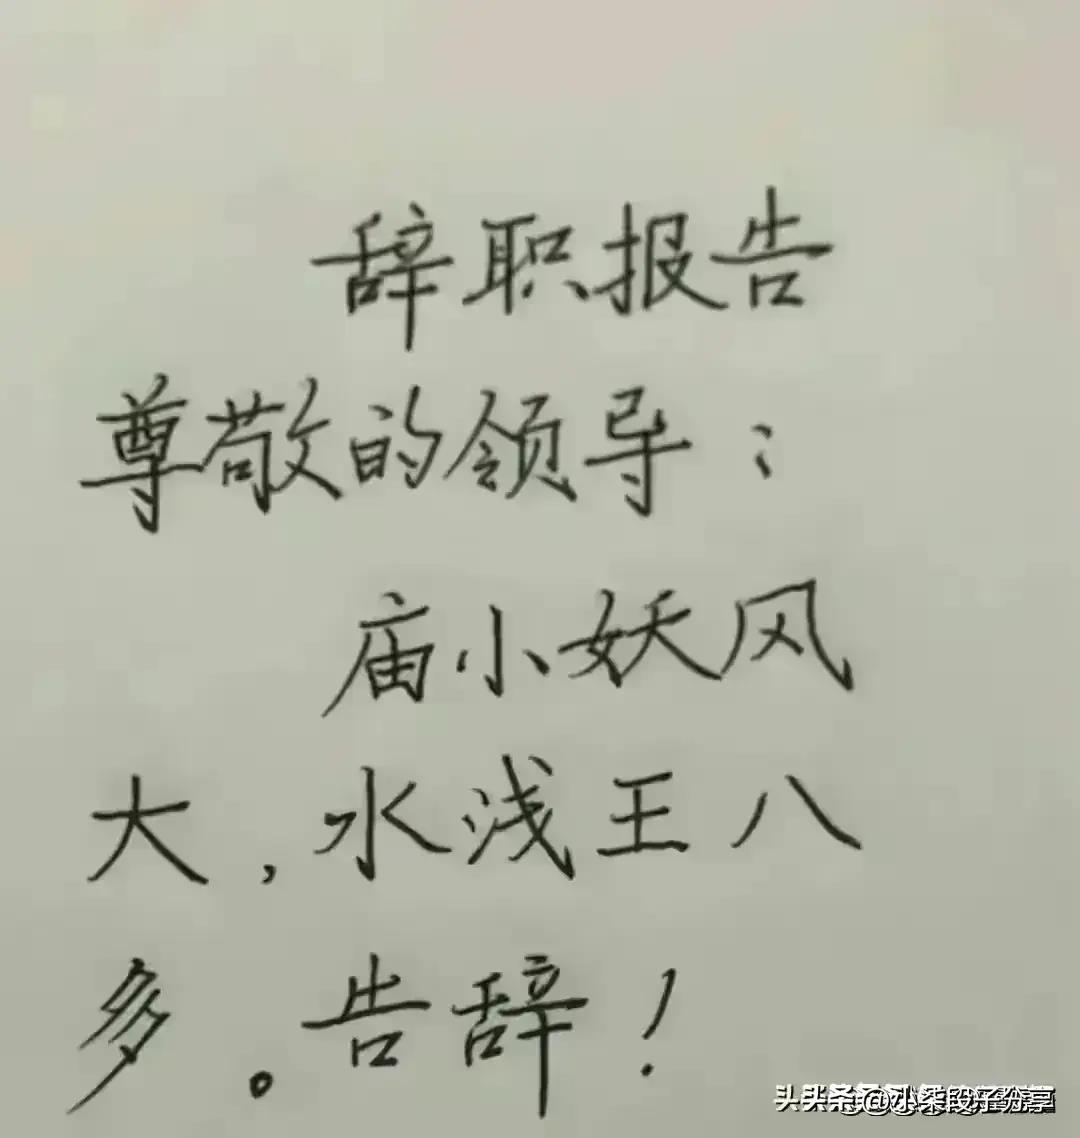 辞职报告
尊敬的领导：
庙小妖风
大，水浅王八
多。告辞！
头条@小柒段子分享